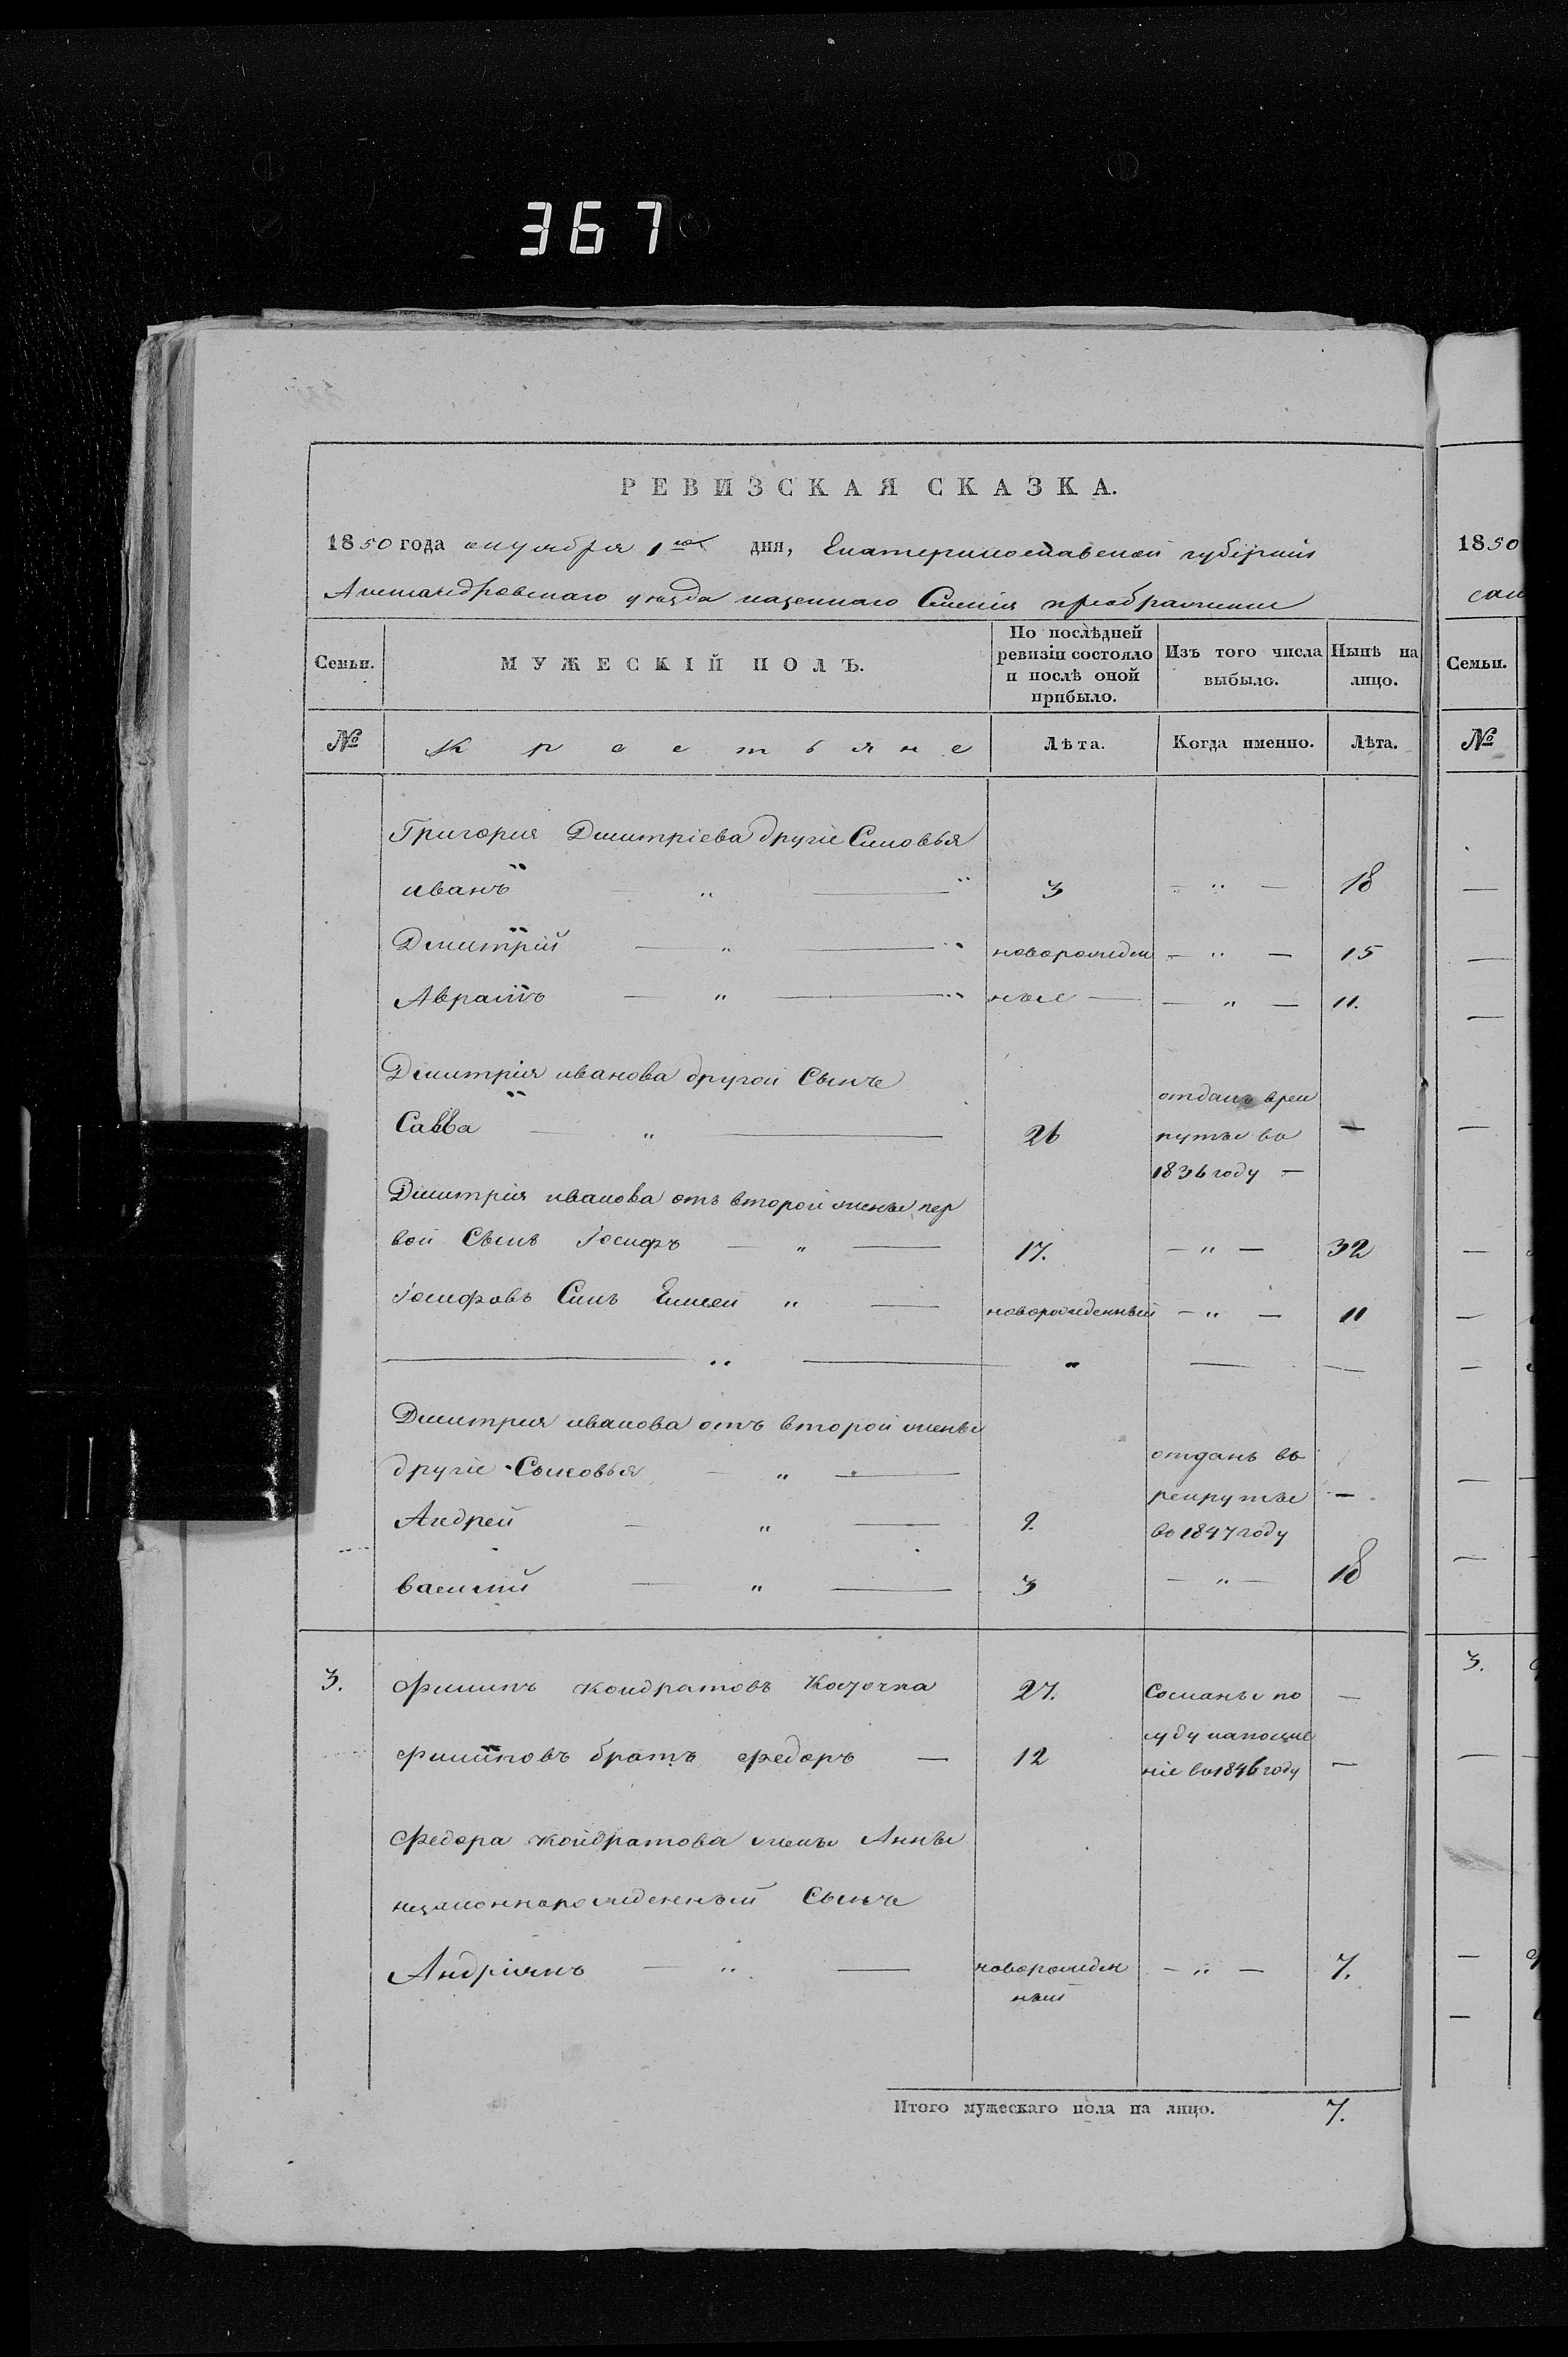 367
РЕВИЗСКАЯ СКАЗКА.
1850 года октября 1го дня, Екатеринославской губернии
Александровскаго уезда казеннаго Селенія преображенки
Семьи. МУЖЕСКІЙ ПОЛЪ. По послѣдней ревизіи состояло и послѣ оной прибыло. Изъ того числа выбыло. Нынѣ на лицо.
№ Крестьяне Лѣта. Когда именно. Лѣта.
Григория Дмитріева другіе Синовья
иванъ — „ — 3 — „ — 18
Дмитрій — „ — новорожден — „ — 15
Аврамъ — „ — ные — — „ — 11.
Дмитрія иванова другой Сынъ
Савва — „ — 26 отданъ врек
руты во —
1836 году —
Дмитрія иванова отъ второй жены пер
вой Сынъ Іосифъ — „ — 17. — „ — 32
Іосифовъ Синъ Елисей „ — новорожденный — „ — 11
— „ — „ — —
Дмитрия иванова отъ второй жены
другіе Сыновья — „ —
Андрей — „ — 9. отданъ во
рекруты —
во 1847 году
василий — „ — 3 — „ — 18
3. Филипъ кондратовъ 27. Сосланы по —
Филиповъ братъ Федоръ — 12
ніе во 1846 году —
Федора кондратова жены Анны
незаконнорожденный Сынъ
Андріянъ — „ — новорожден — „ — 7.
ный
Итого мужескаго пола на лицо. 7.
1850
Семьи.
№
3.